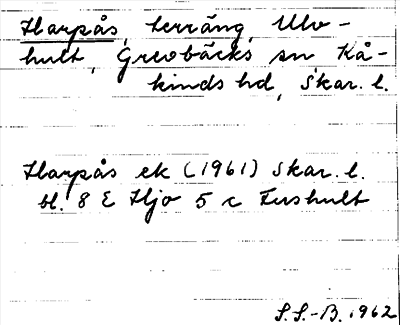 Harpås, terräng, Ulv-
hult, Grevbäcks sn Kå-
kinds hd, Skar. l.
Harpås ek (1961) Skar. l.
bl. 8 E Hjo 5 c Furshult
S.S.-B. 1962